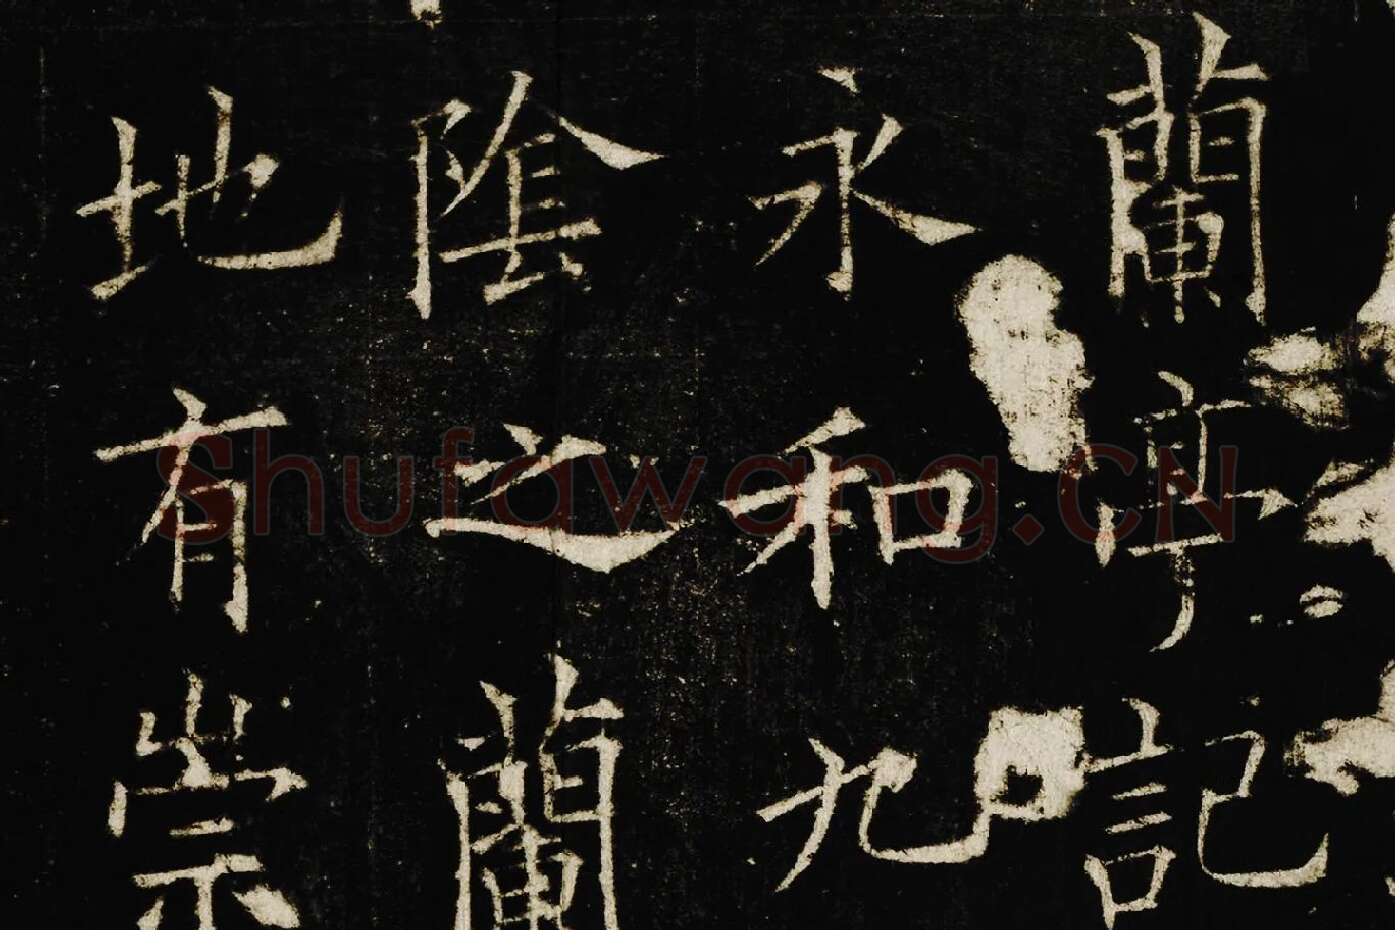 蘭亭記
永和九
陰之蘭
地有崇
Shufawang.CN